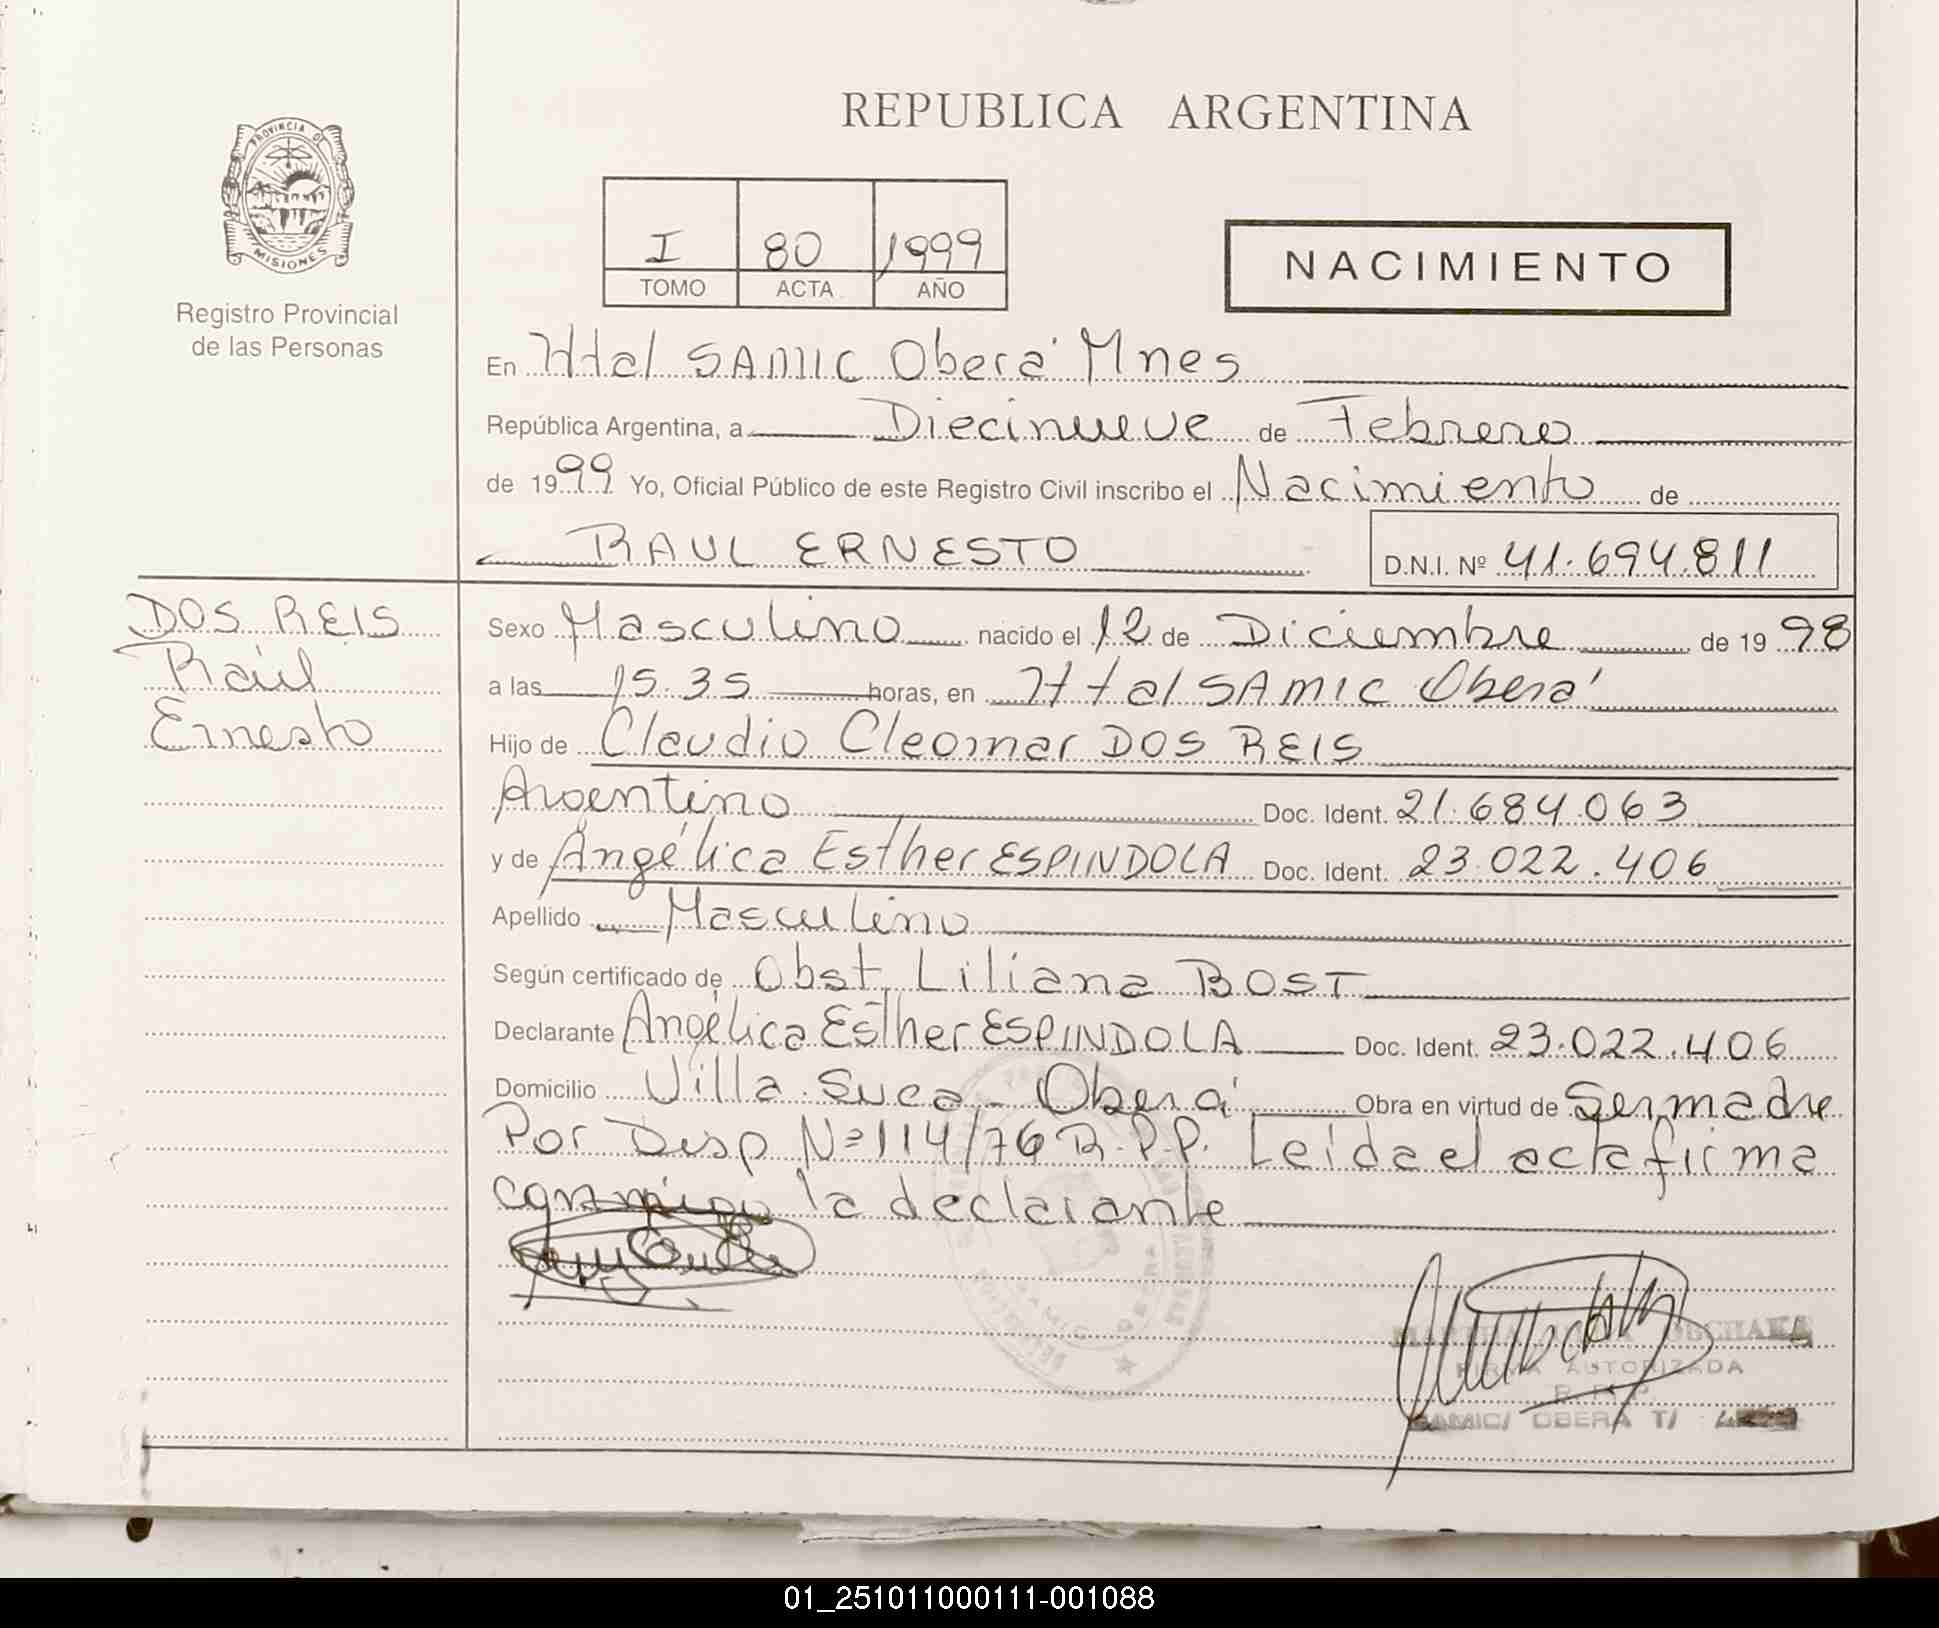 REPUBLICA ARGENTINA
PROVINCIA DE
MISIONES
Registro Provincial
de las Personas
I 80 1999
TOMO ACTA AÑO
NACIMIENTO
En Htal SAMIC Oberá Mnes
República Argentina, a Diecinueve de Febrero
de 1999 Yo, Oficial Público de este Registro Civil inscribo el Nacimiento de
RAUL ERNESTO D.N.I. Nº 41.694.811
DOS REIS
Raúl
Ernesto
Sexo Masculino nacido el 12 de Diciembre de 1998
a las 15.35 horas, en Htal SAMIC Oberá
Hijo de Claudio Cleomar DOS REIS
Argentino Doc. Ident. 21.684.063
y de Angélica Esther ESPINDOLA Doc. Ident. 23.022.406
Apellido Masculino
Según certificado de Obst. Liliana BOST
Declarante Angélica Esther ESPINDOLA Doc. Ident. 23.022.406
Domicilio Villa Suca - Oberá Obra en virtud de Ser madre
Por Disp Nº 114/76 R.P.P. Leída el acta firma
conmigo la declarante
FIRMA AUTORIZADA
R.P.P.
SAMIC/ OBERA T/
01_251011000111-001088